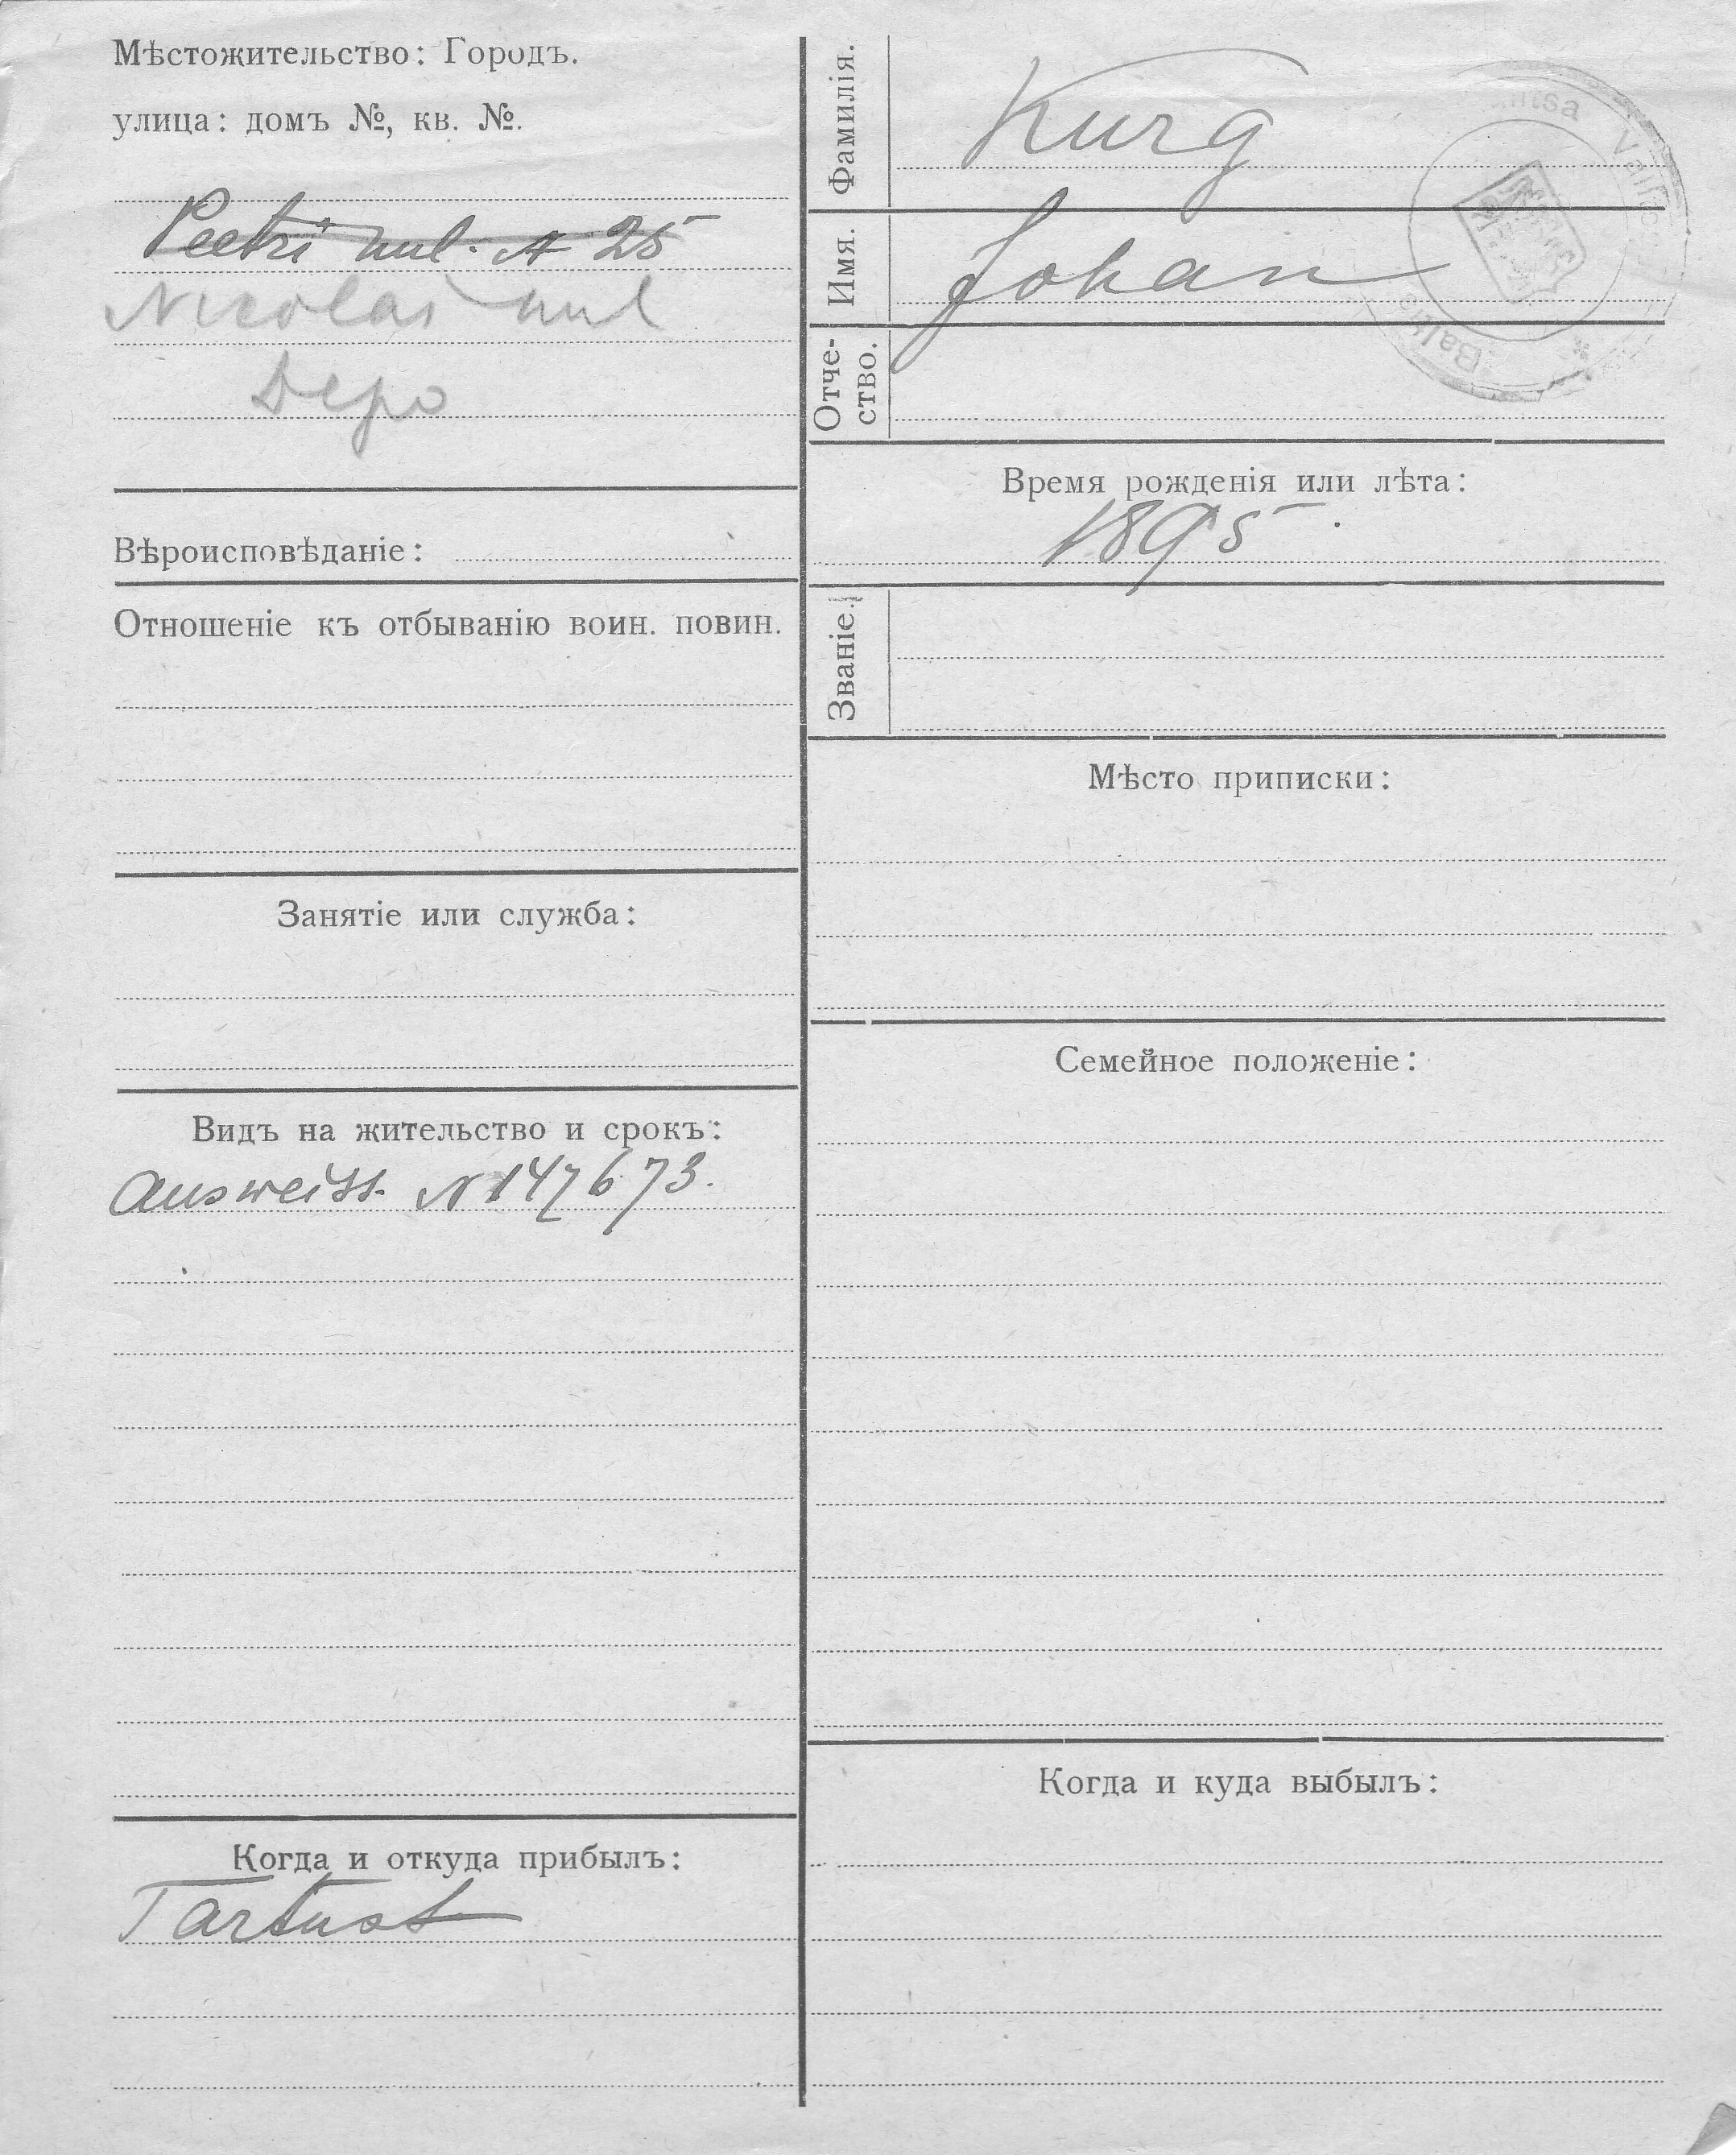 Мѣстожительство: Городъ.
улица: домъ №, кв. №.
Peetri uul. № 25
Nicolai uul
Depo
Вѣроисповѣданіе:
Отношеніе къ отбыванію воин. повин.
Занятіе или служба:
Видъ на жительство и срокъ:
Ausweiss. N 147673.
Когда и откуда прибылъ:
Tartust
Фамилія.
Kurg
Имя.
Johan
Отче-
ство.
Время рожденія или лѣта:
1895.
Званіе.
Мѣсто приписки:
Семейное положеніе:
Когда и куда выбылъ: